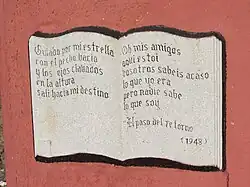 Guiado por mi estrella
con el pecho vacio
y los ojos clavados
en la altura
sali hacia mi destino
Oh mis amigos
aqui estoi
vosotros sabeis acaso
lo que yo era
pero nadie sabe
lo que soy
El paso del retorno
(1948)